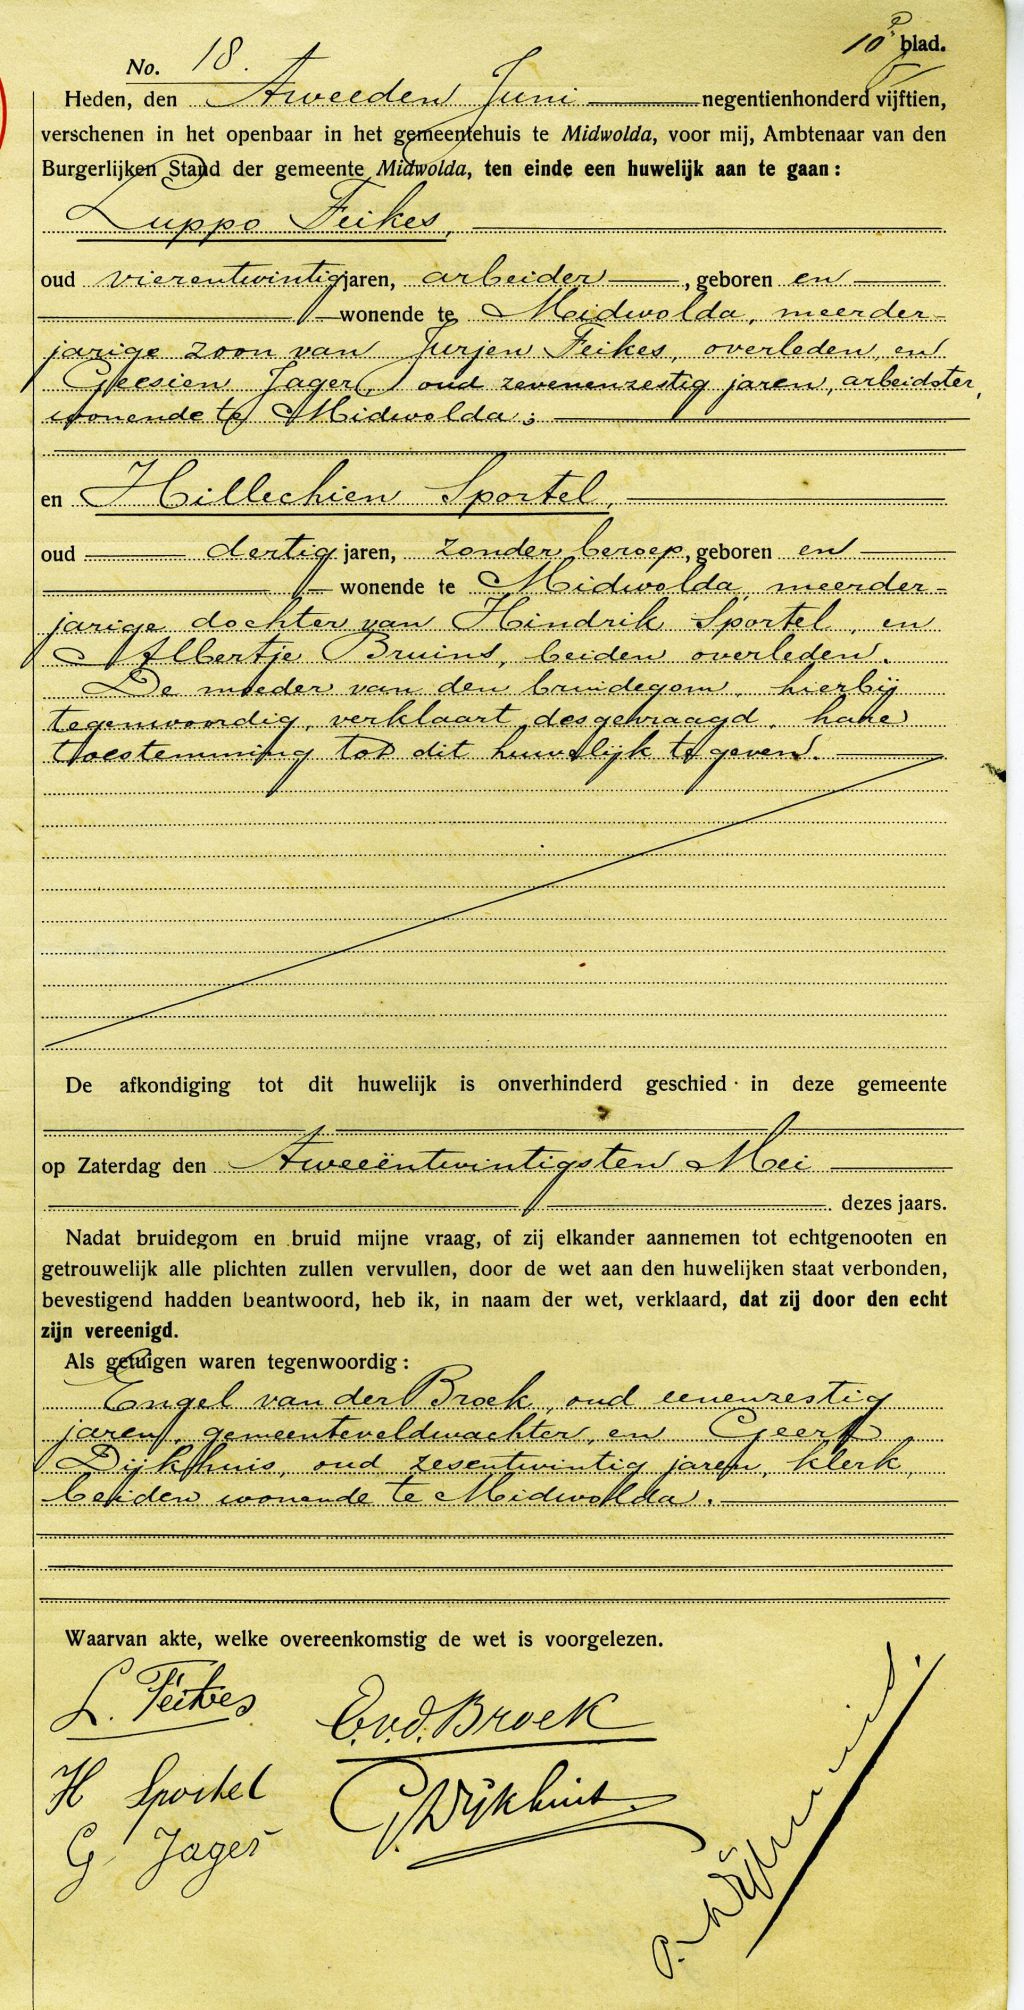 No. 18. 10e blad.
Heden, den Tweeden Juni negentienhonderd vijftien,
verschenen in het openbaar in het gemeentehuis te Midwolda, voor mij, Ambtenaar van den
Burgerlijken Stand der gemeente Midwolda, ten einde een huwelijk aan te gaan:
Luppo Feikes,
oud vierentwintig jaren, arbeider, geboren en
wonende te Midwolda, meerder-
jarige zoon van Jurjen Feikes, overleden, en
Geesien Jager, oud zevenenzestig jaren, arbeidster,
wonende te Midwolda;
en Hillechien Sportel,
oud dertig jaren, zonder beroep, geboren en
wonende te Midwolda, meerder-
jarige dochter van Hindrik Sportel, en
Albertje Bruins, beiden overleden.
De moeder van den bruidegom, hierbij
tegenwoordig, verklaart, desgevraagd, hare
toestemming tot dit huwelijk te geven.
De afkondiging tot dit huwelijk is onverhinderd geschied in deze gemeente
op Zaterdag den Tweeëntwintigsten Mei
dezes jaars.
Nadat bruidegom en bruid mijne vraag, of zij elkander aannemen tot echtgenooten en
getrouwelijk alle plichten zullen vervullen, door de wet aan den huwelijken staat verbonden,
bevestigend hadden beantwoord, heb ik, in naam der wet, verklaard, dat zij door den echt
zijn vereenigd.
Als getuigen waren tegenwoordig:
Engel van der Broek, oud eenenzestig
jaren, gemeenteveldwachter, en Geert
Dijkhuis, oud zesentwintig jaren, klerk,
beiden wonende te Midwolda.
Waarvan akte, welke overeenkomstig de wet is voorgelezen.
L. Feikes
E.v.d. Broek
H Sportel
G. Dijkhuis.
G Jager